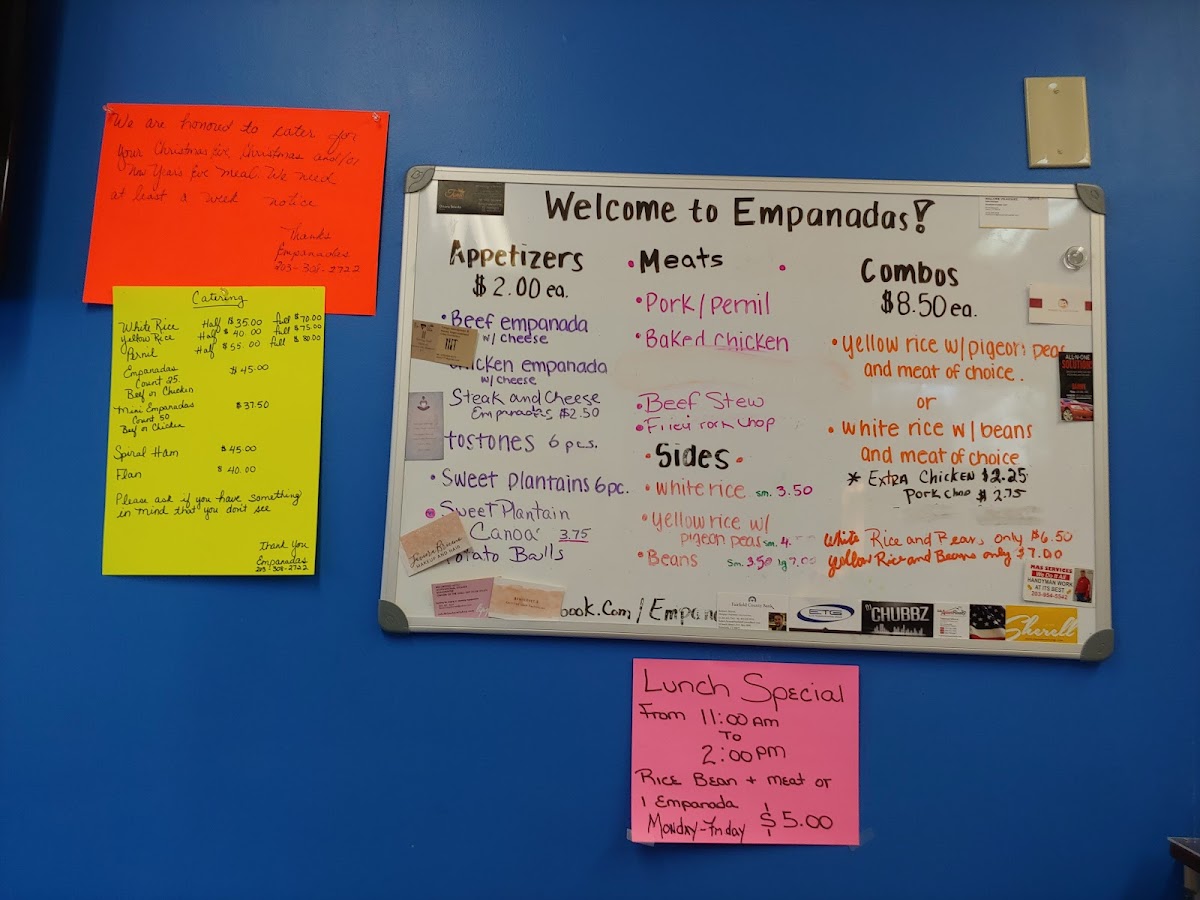 We are honored to cater for
your Christmas Eve, Christmas and/or
New Year's Eve meal. We need
at least a week notice
Thanks
Empanadas
203-308-2722
Catering
White Rice Half $35.00 full $70.00
Yellow Rice Half $40.00 full $75.00
Pernil Half $55.00 full $80.00
Empanadas $45.00
Count 25
Beef or Chicken
Mini Empanadas $37.50
Count 50
Beef or Chicken
Spiral Ham $45.00
Flan $40.00
Please ask if you have something
in mind that you don't see
Thank You
Empanadas
203-308-2722
Welcome to Empanadas!
Appetizers
$2.00 ea.
• Beef empanada
w/ cheese
chicken empanada
w/cheese
Steak and Cheese
Empanadas $2.50
tostones 6 pcs.
• Sweet Plantains 6pc.
• Sweet Plantain
Canoa 3.75
Potato Balls
• Meats •
• Pork/pernil
• Baked chicken
• Beef Stew
• Fried Pork chop
• Sides •
• white rice sm. 3.50
• yellow rice w/
pigeon peas sm. 4.
• Beans sm. 3.50 lg 7.00
Combos
$8.50 ea.
• yellow rice w/pigeon peas
and meat of choice.
or
• white rice w/beans
and meat of choice
* Extra Chicken $2.25
Pork chop $2.75
White Rice and Beans only $6.50
yellow Rice and Beans only $7.00
book.Com/Empan
ALL-N-ONE
SOLUTION
MAS SERVICES
We Do It All
HANDYMAN WORK
AT ITS BEST
203-954-5542
Fairfield County Bank
ETG
CHUBBZ
Sherell
MAKEUP AND HAIR
Lunch Special
From 11:00 AM
To
2:00 PM
Rice Bean + meat or
1 Empanada
Monday-Friday $5.00